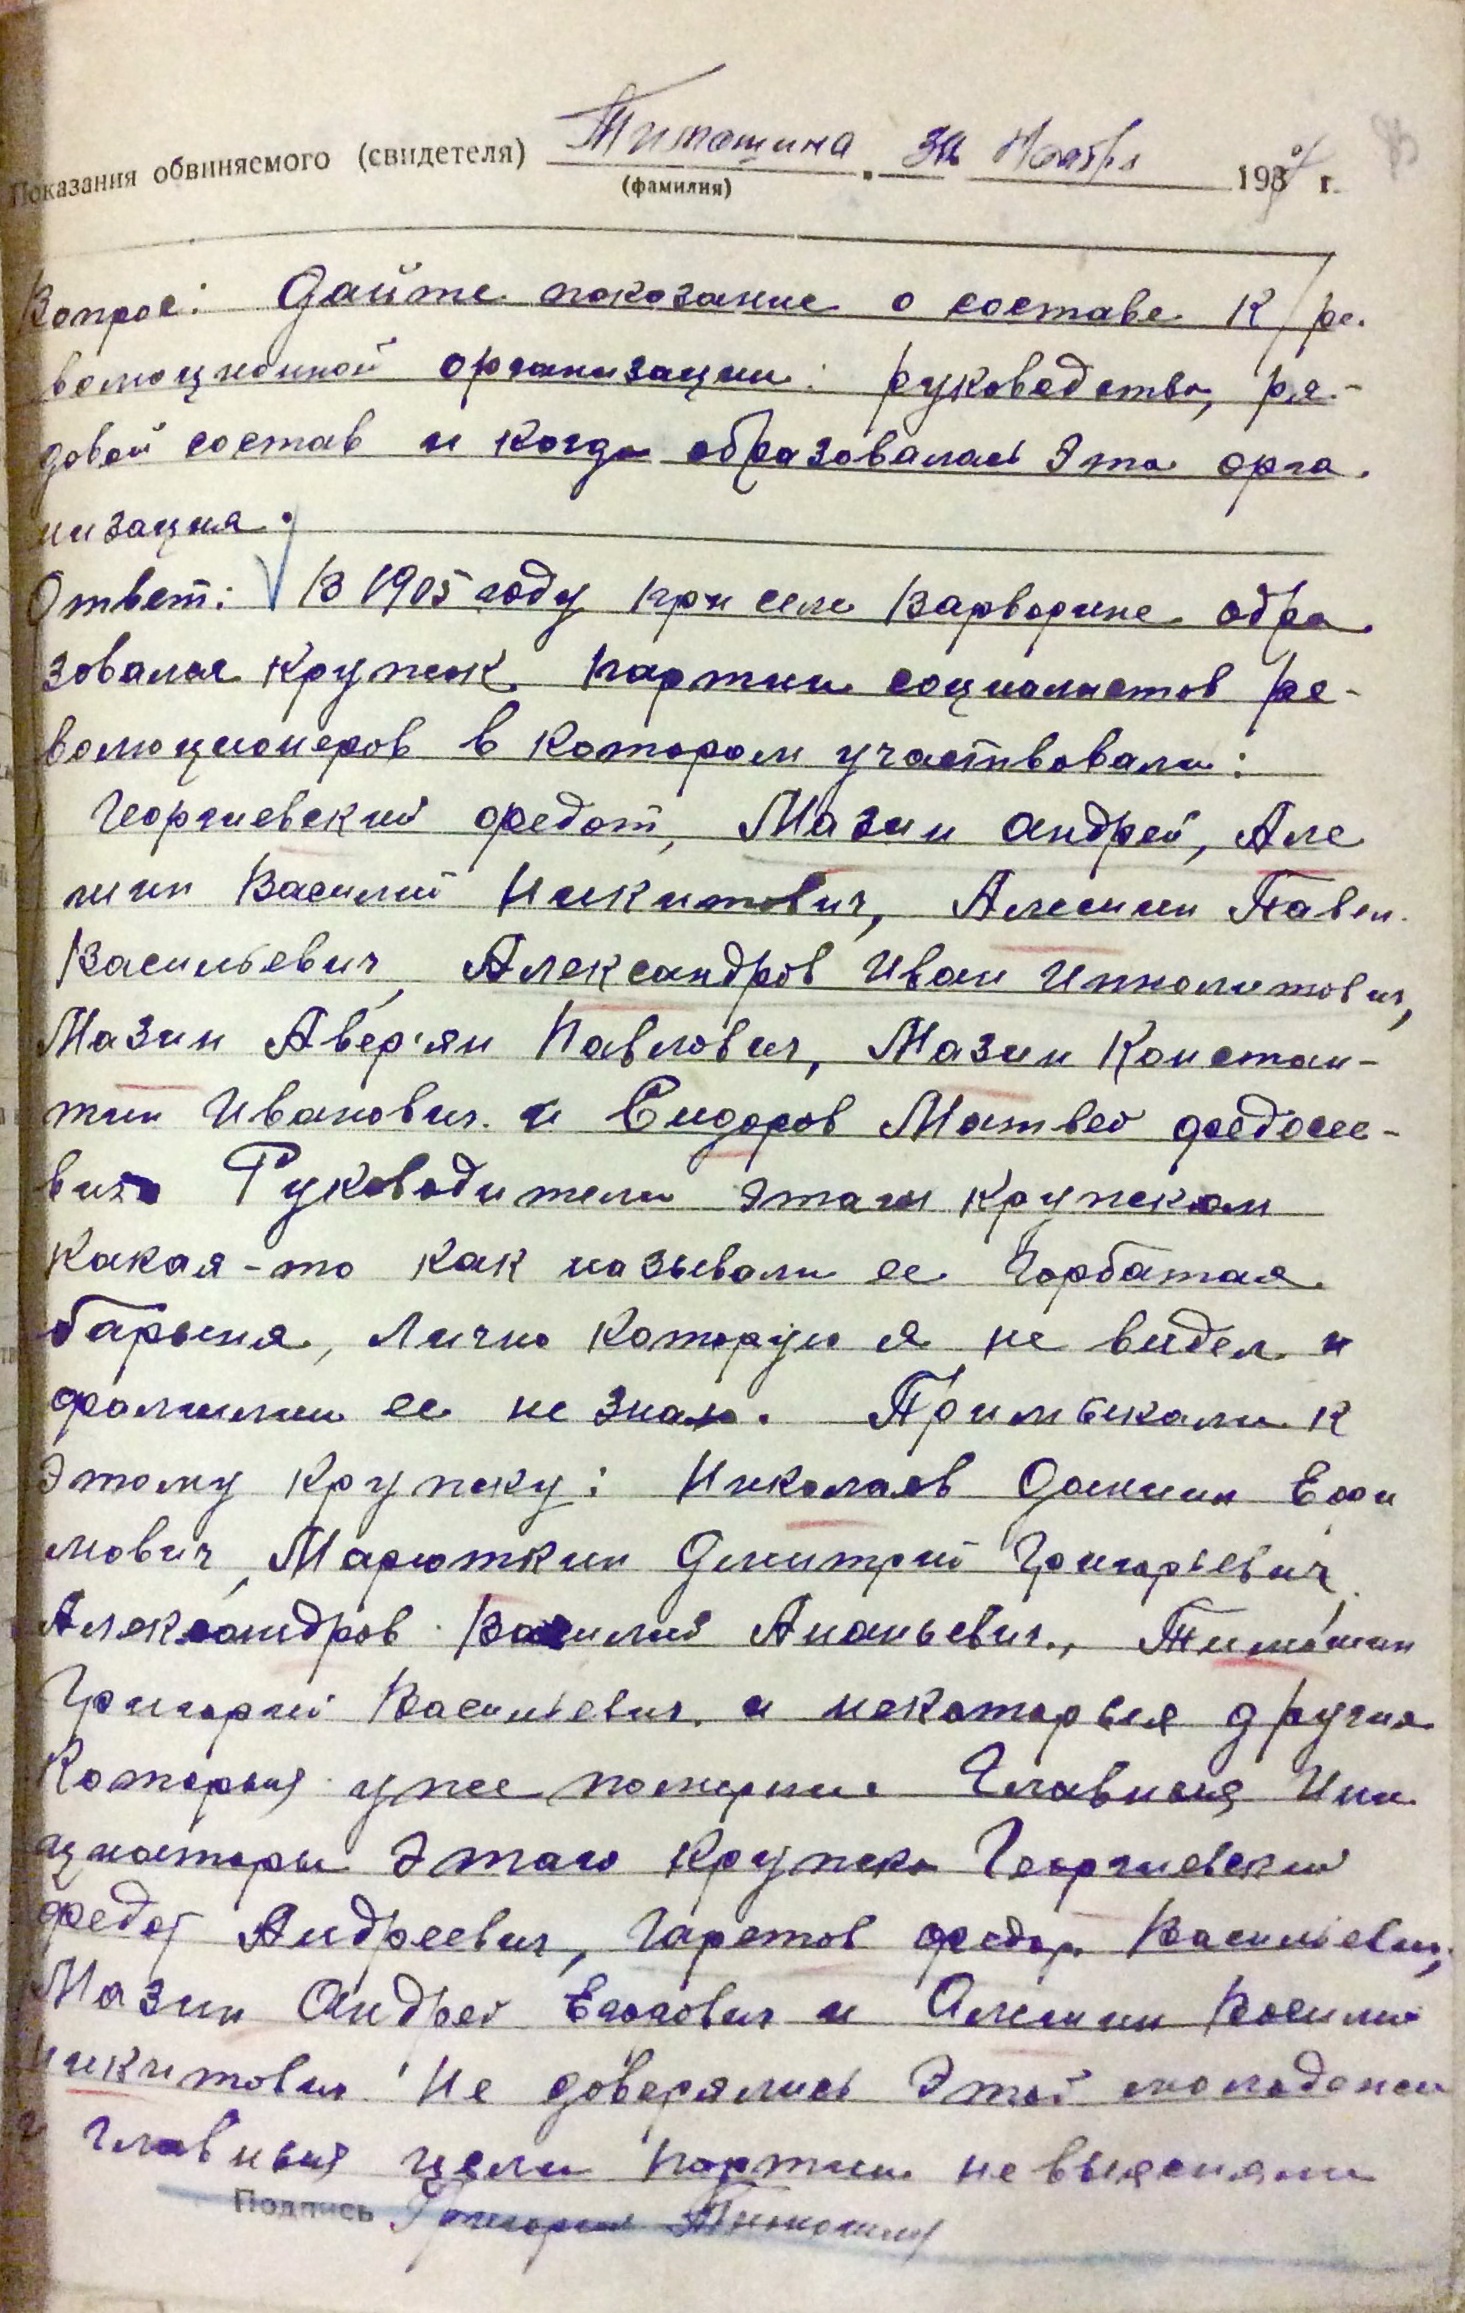 Показания обвиняемого (свидетеля) Тимошина 30 Ноября 1930 г.
(фамилия)
Вопрос: Дайте показание о составе К/ре-
волюционной организации: руководство, ря-
довой состав и когда образовалась эта орга
низация.
Ответ: В 1905 году при селе Варварине обра
зовался кружок партии социалистов ре-
волюционеров в котором участвовали:
Георгиевский Федот, Мазин Андрей, Але
шин Василий Никитович, Алешин Павел
Васильевич, Александров Иван Ипполитович,
Мазин Авер'ян Павлович, Мазин Констан-
тин Иванович и Сидоров Матвей Федосее-
вич Руководители этаго кружком
какая-то как называли ее Горбатая
барыня, лично которую я не видел и
фамилии ее не знаю. Примыкали к
этому кружку: Николаев Данил Ефи
мович, Марюткин Дмитрий Григорьевич,
Александров Василий Ананьевич, Тимошин
Григорий Васильевич и некоторыя другия
Которыя уже померли. Главныя Ини
циаторы этаго кружка Георгиевский
Федот Андреевич, Гаретов Федор Васильевич,
Мазин Андрей Егорович и Алешин Василий
Никитович. Не доверялись этой молодежи
и главныя цели партии не выясняли
Подпись Григорий Тимошин